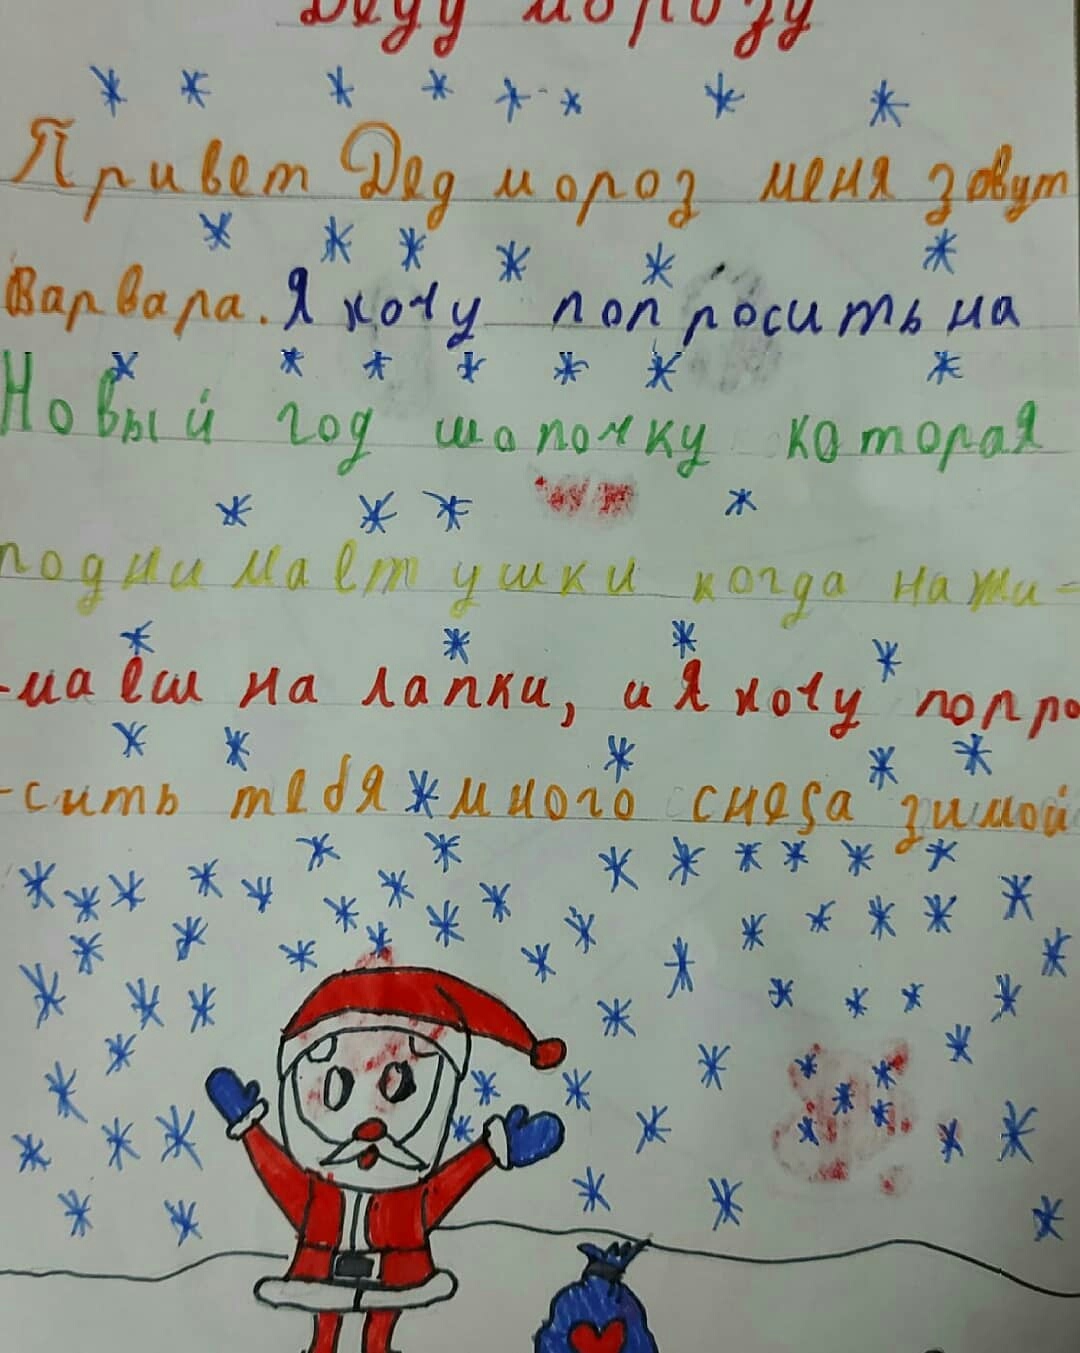 Деду морозу
Привет Дед мороз меня зовут
Варвара. Я хочу попросить на
Новый год шапочку которая
поднимает ушки когда нажи-
-маеш на лапки, и я хочу попро
-сить тебя много снега зимой